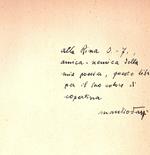 alla Rina S.-F.,
amica-nemica della
mia poesia, questo libro
per il suo colore di
copertina